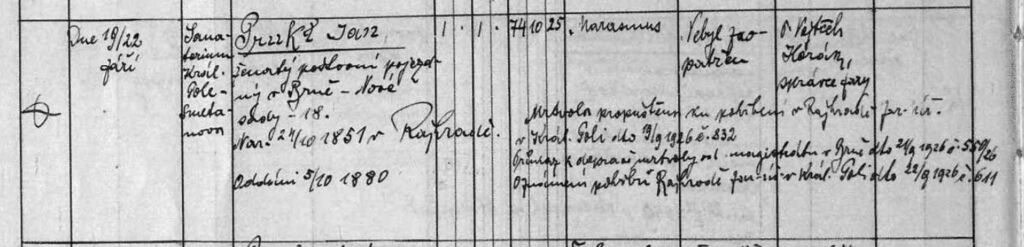 Dne 19/22
září
Sana-
torium
Král.
Pole -
Smeta-
nova
Prukš Jan
ženatý poštovní pojezd-
ný v Brně - Nové
sady - 18.
Nar. 24/10 1851 v Rajhradě.
Oddavní 5/10 1880
1 . 1 .
74 10 25
Marasmus
Nebyl zao-
patřen
P. Vojtěch
Horák,
správce fary
Mrtvola propuštěna ku pohřbení v Rajhradě far. úř.
v Král. Poli dto 19/9 1926 č. 332
Průkaz k dopravě mrtvoly od magistrátu v Brně dto 21/9 1926 č. 559/26
Oznámení pohřbu Rajhradě far. úř. v Král. Poli dto 22/9 1926 č. 611